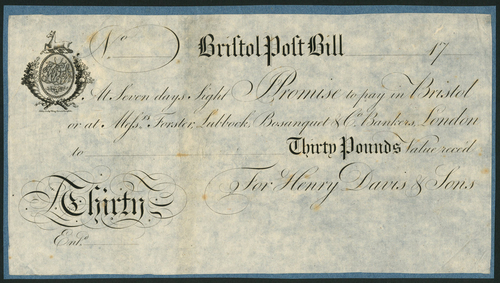 No Bristol Post Bill 17
At Seven days Sight I Promise to pay in Bristol
or at Messrs. Forster, Lubbock, Bosanquet & Co. Bankers, London
to Thirty Pounds Value reced
For Henry Davis & Sons
Thirty
Entd.